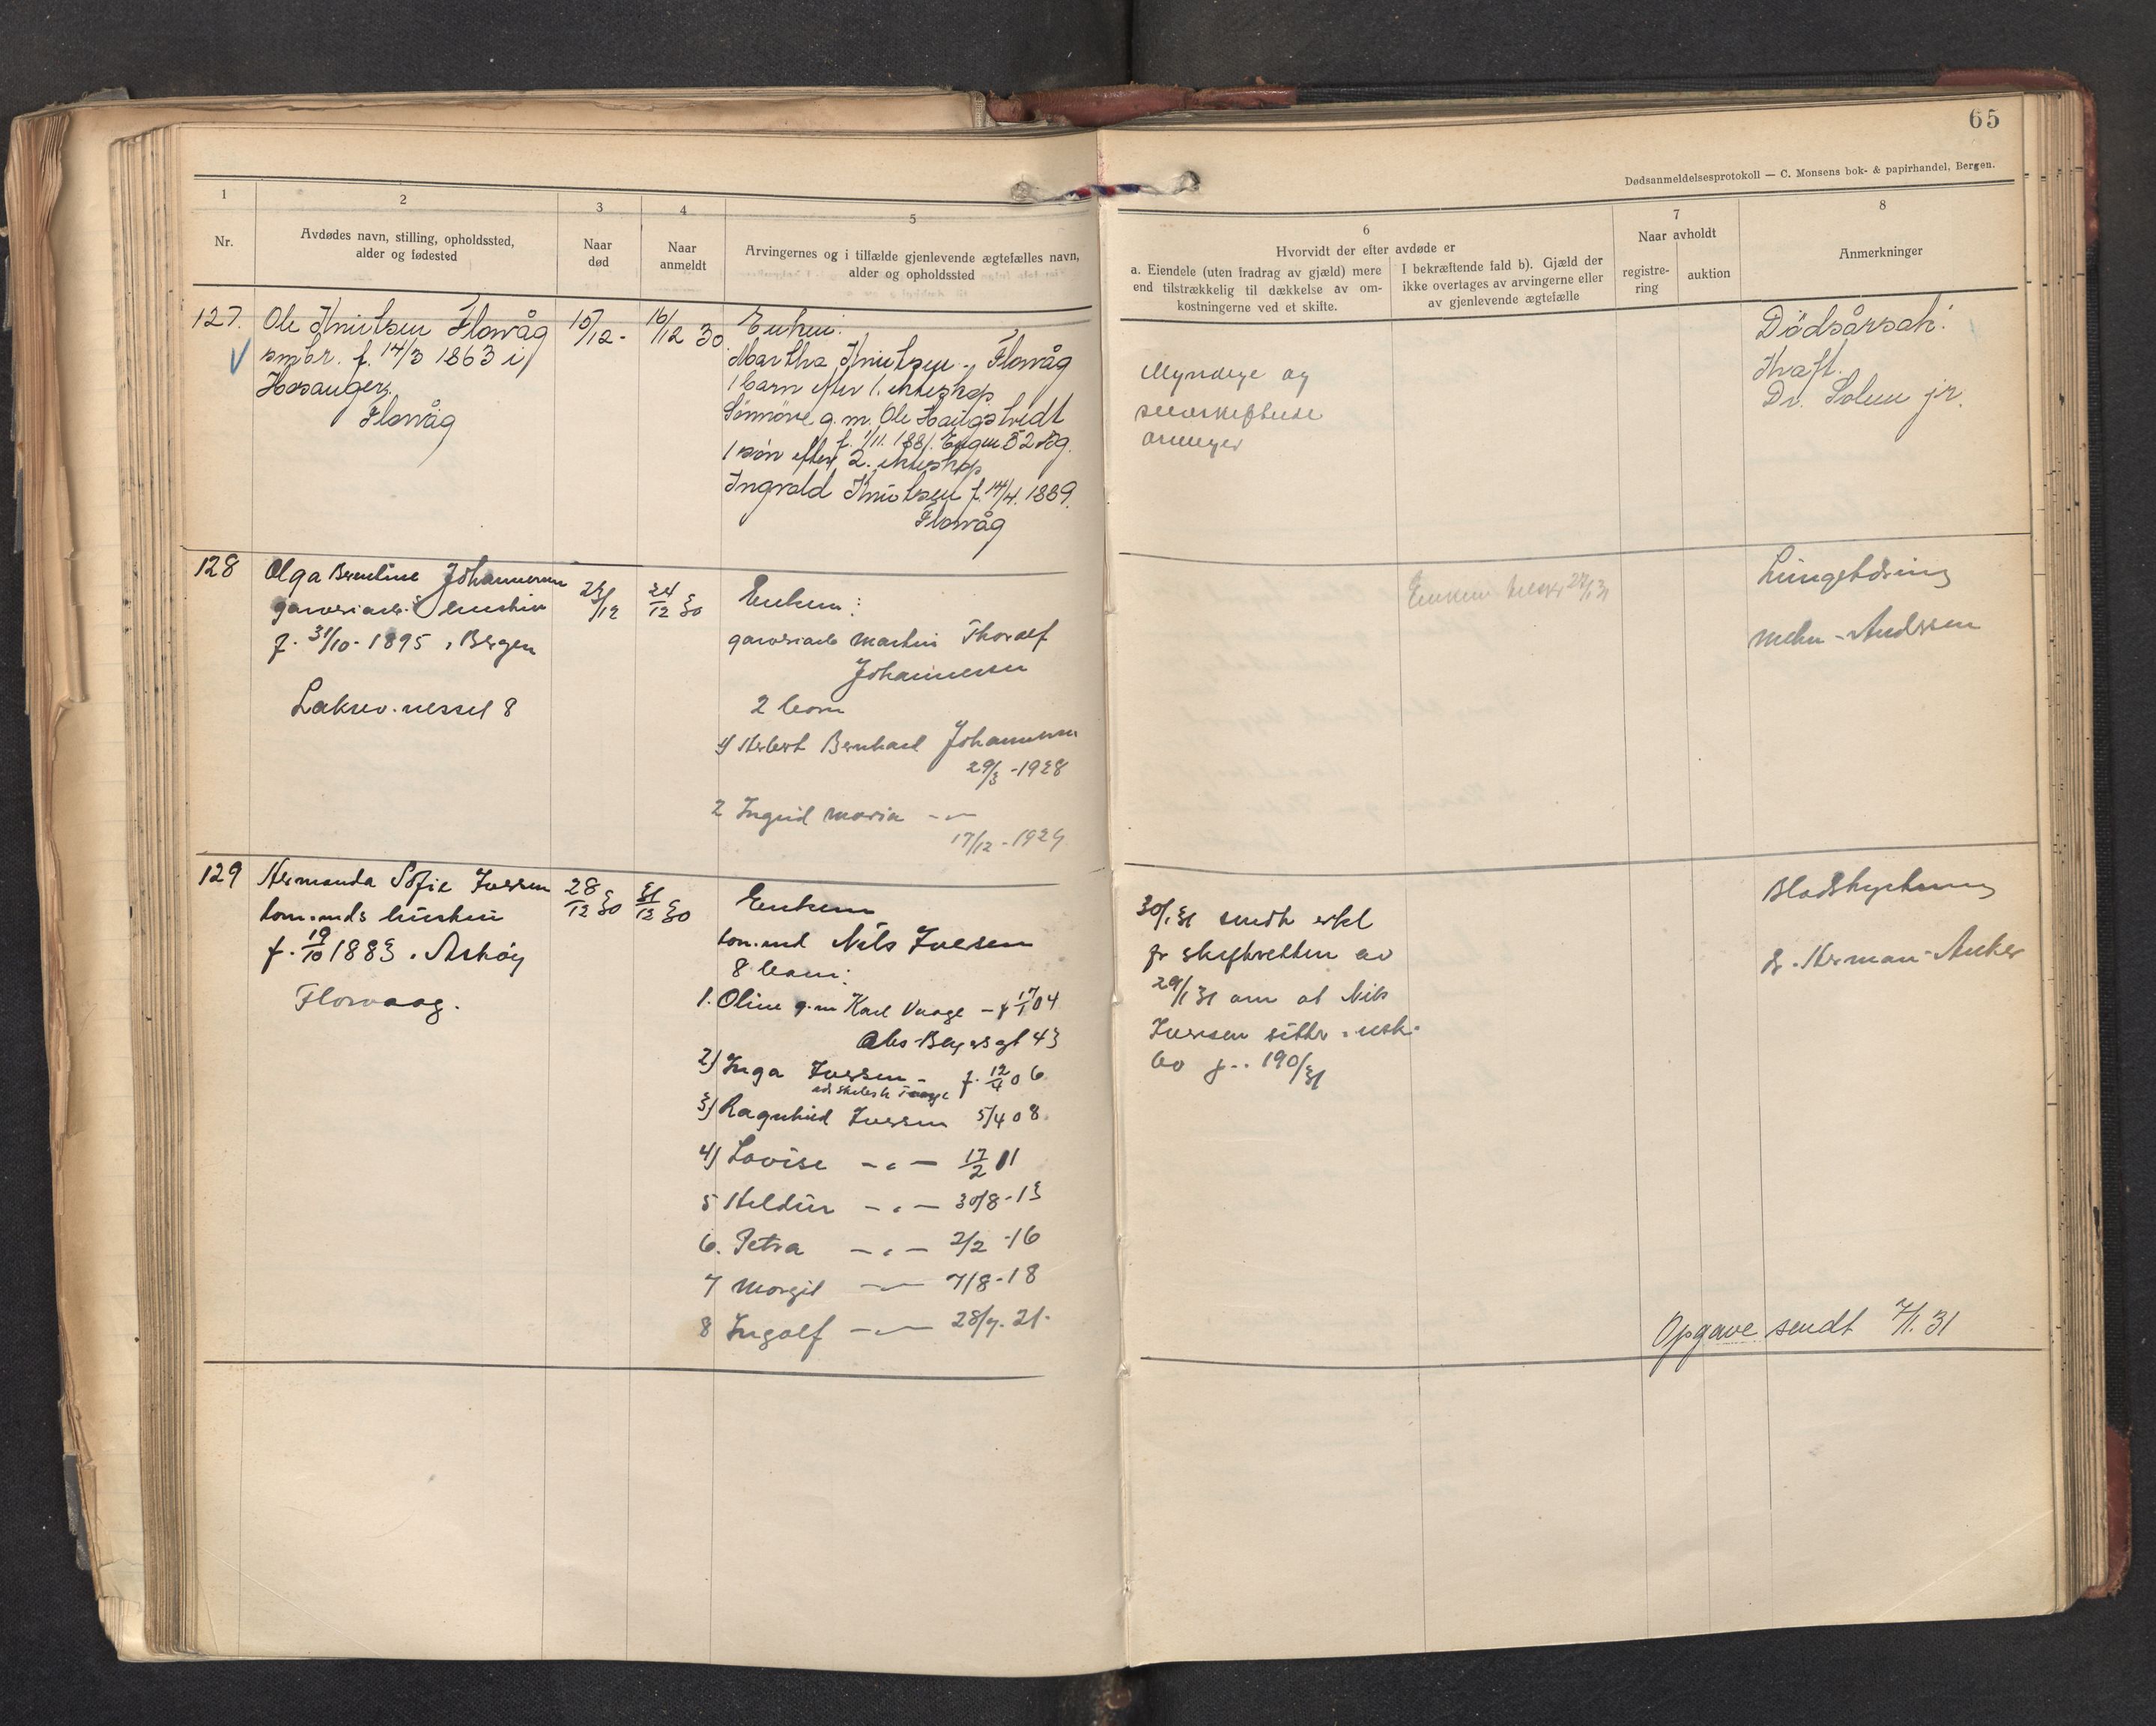 65
Dødsanmeldelsesprotokoll — C. Monsens bok- & papirhandel, Bergen.
1
Nr.
2
Avdødes navn, stilling, opholdssted,
alder og fødested
3
Naar
død
4
Naar
anmeldt
5
Arvingernes og i tilfælde gjenlevende ægtefælles navn,
alder og opholdssted
6
Hvorvidt der efter avdøde er
a. Eiendele (uten fradrag av gjæld) mere
end tilstrækkelig til dækkelse av om-
kostningerne ved et skifte.
I bekræftende fald b). Gjæld der
ikke overtages av arvingerne eller
av gjenlevende ægtefælle
7
Naar avholdt
registre-
ring
auktion
8
Anmerkninger
127.
Ole Knutsen Florvåg
smbr. f. 14/3 1863 i
Hosanger
Florvåg
15/12 -
16/12 30
Enken:
Martha Knutsen, Florvåg
1 barn efter 1. ekteskap
Sønnøve g.m. Ole Haugstvedt
f. 1/11. 1881. Engen 52 Bg.
1 søn efter 2. ekteskap
Ingvald Knutsen f. 14/4. 1889.
Florvåg
Myndige og
arvinger
Dödsårsak:
Kraft.
Dr. Solem jr.
128
Olga Berntine Johannesen
garveriarb. hustru
f. 31/10 - 1895 i Bergen
Laksev. nessel 8
23/12
24/12 30
Enkem:
garveriarb Martin Thoralf
Johannesen
2 barn
1) Herbert Bernhard Johannesen
29/3 - 1928
2 Ingrid Maria -"-
17/12 - 1929
Enkem 27/1 31
Lungebetændelse
Mohn-Andersen
129
Hermanda Sofie Iversen
tom.mds hustru
f. 19/10 1883 i Askøy
Florvaag.
28/12 30
31/12 30
Enkem
tom.md Nils Iversen
8 barn:
1. Oline g.m Karl Vaage - f 17/1 04
43
2) Inga Iversen - f. 12/4 06
3) Ragnhild Iversen 5/4 08
4) Lovise -"- 17/2 11
5 Heldur -"- 30/8 - 13
6. Petra -"- 2/2 - 16
7 Morgit -"- 7/8 - 18
8 Ingolf -"- 28/7. 21.
30/1 31 sendt erkl
fr skifteretten av
29/1 31 om at Nils
Iversen sitter i usk.
bo j.. 190/31
Dr. Herman-Anker
Opgave sendt 7/1. 31